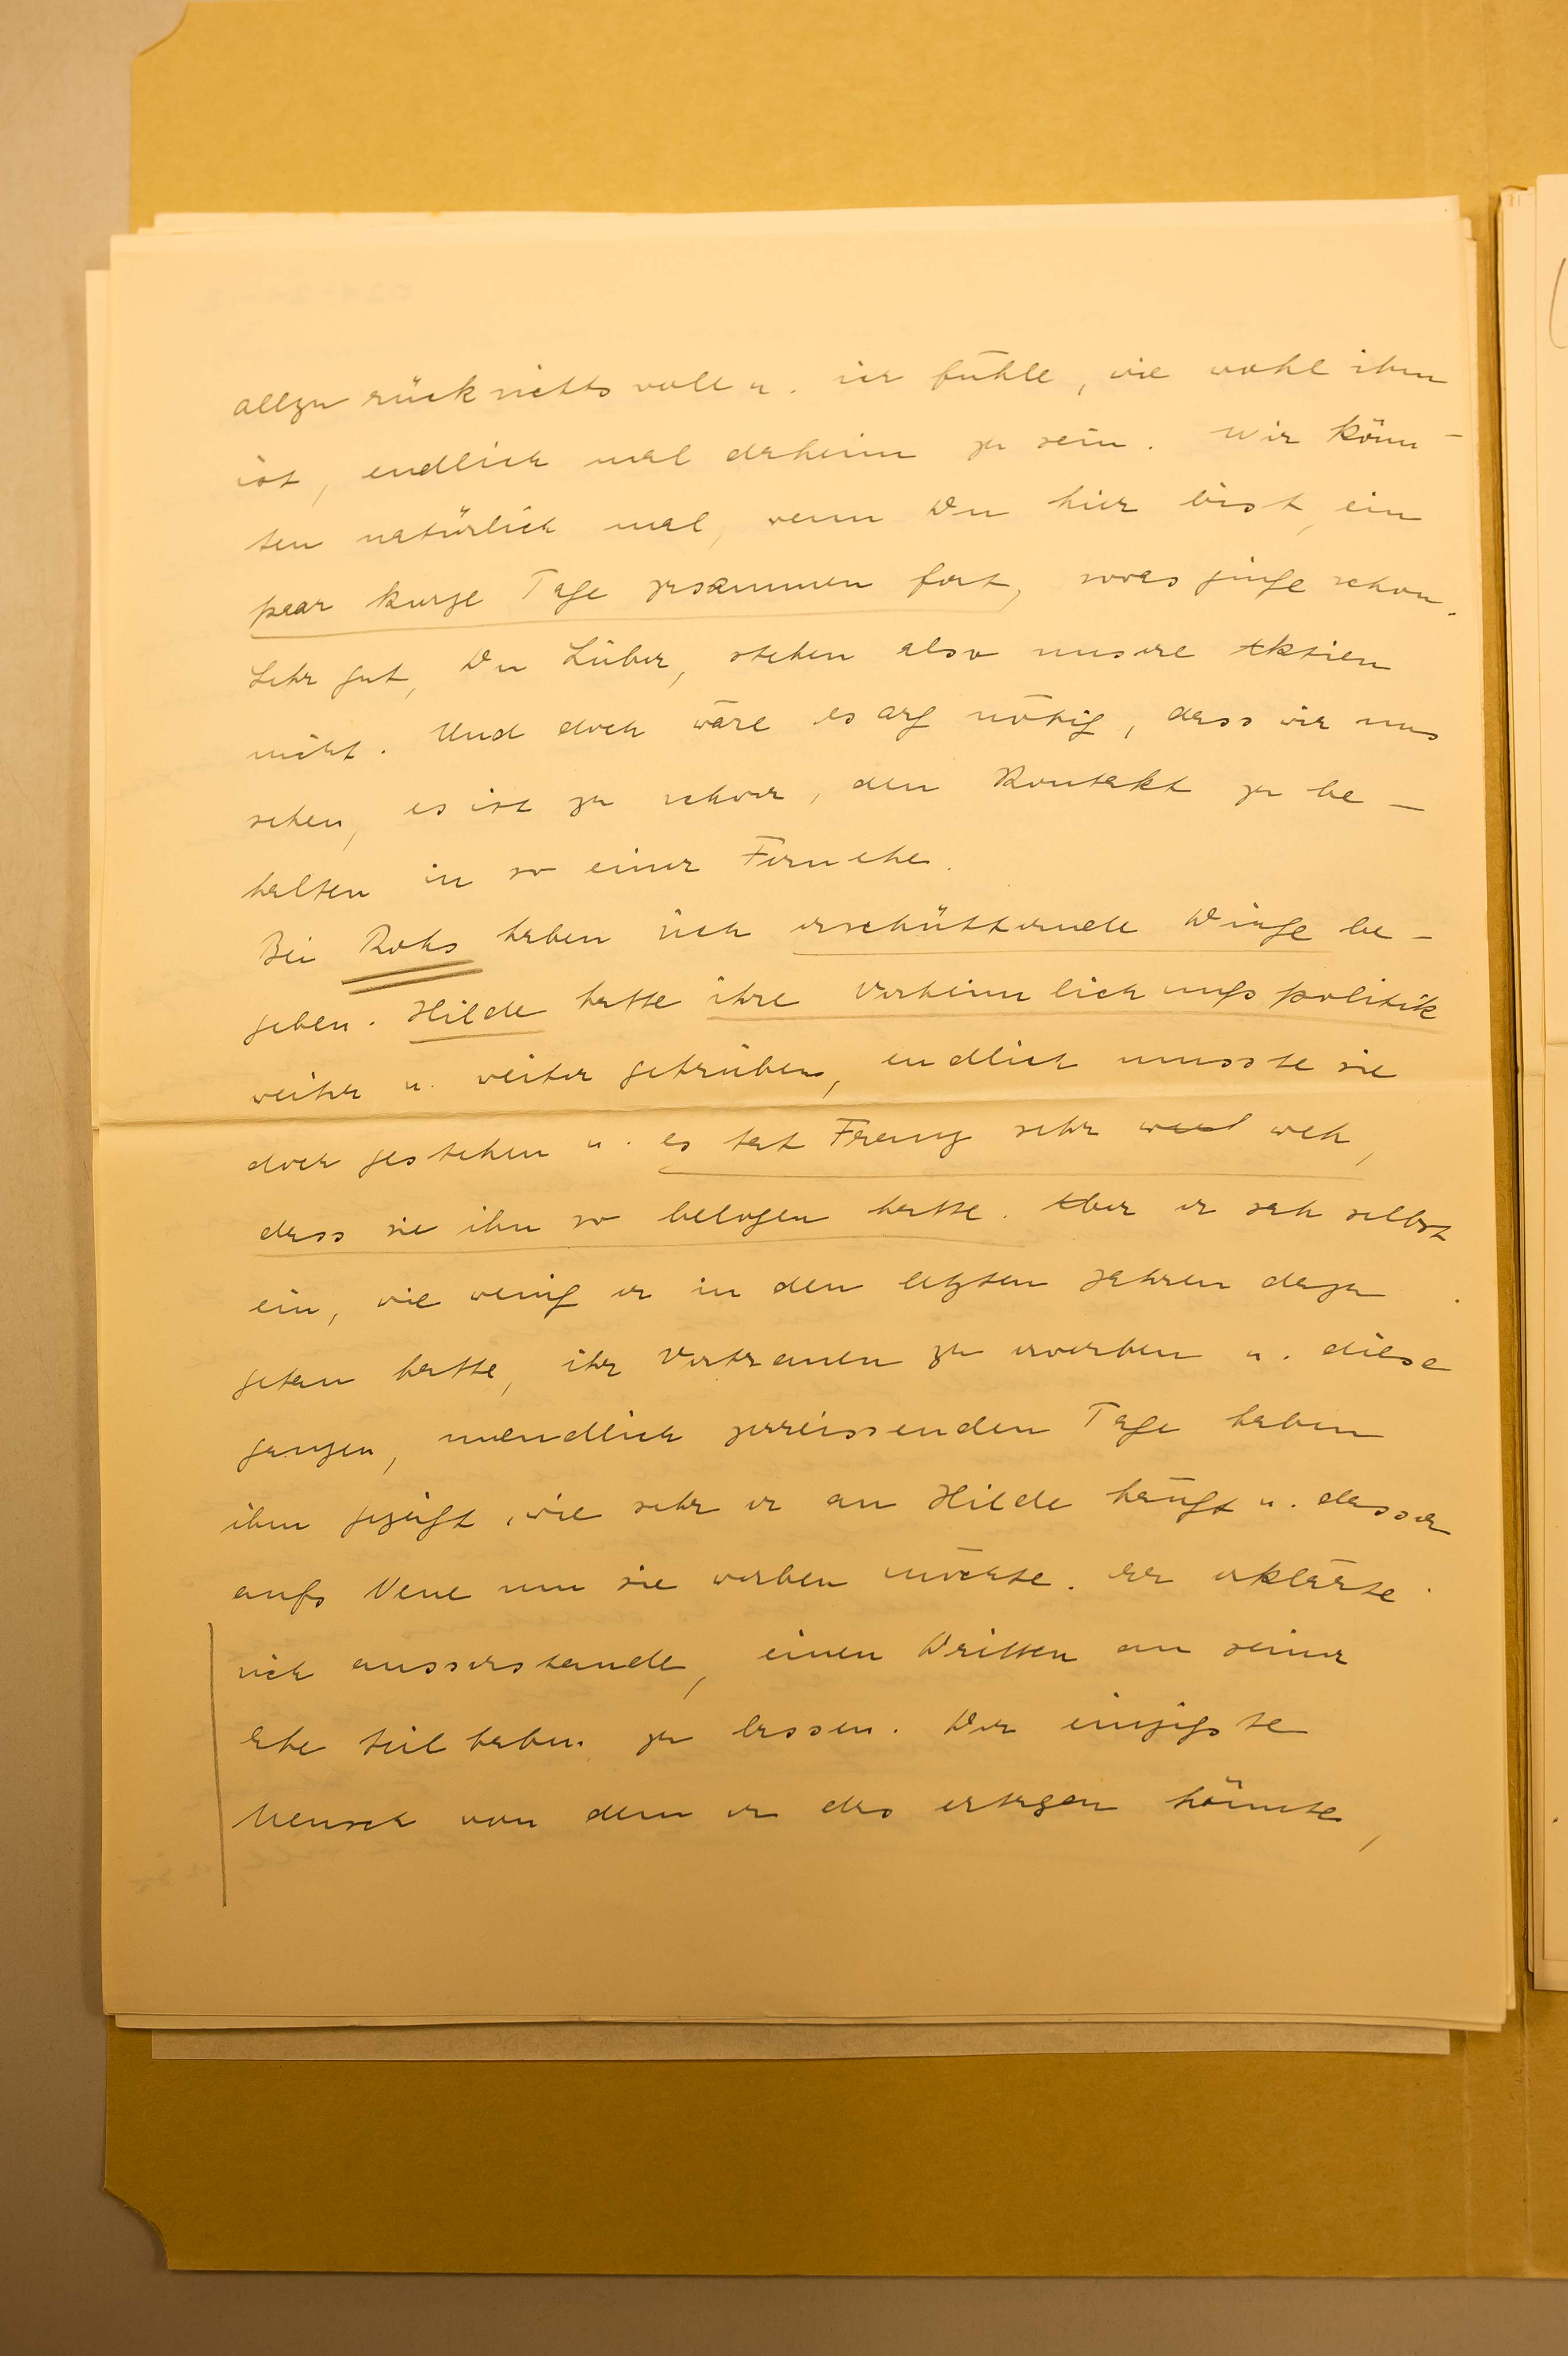 allzu rücksichtsvoll u. ich fühle, wie wohl ihm
ist, endlich mal daheim zu sein. Wir könn-
ten natürlich mal, wenn Du hier bist, ein
paar kurze Tage zusammen fort, sowas ginge schon.
Sehr gut, Du Lieber, stehen also unsere Aktien
nicht. Und doch wäre es arg nötig, dass wir uns
sehen, es ist zu schwer, den Kontakt zu be-
halten in so einer Fernehe.
Bei Rohs haben sich erschütternde Dinge be-
geben. Hilde hatte ihre Verheimlichungspolitik
weiter u. weiter getrieben, endlich musste sie
doch gestehen u. es tat Franz sehr weh,
dass sie ihn so belogen hatte. Aber er sah selbst
ein, wie wenig er in den letzten Jahren dazu
getan hatte, ihr Vertrauen zu erwerben u. diese
ganzen, unendlich zerreissenden Tage haben
ihm gezeigt, wie sehr er an Hilde hängt u. dass er
aufs Neue um sie werben möchte. Er erklärte
sich ausserstande, einen Dritten an seiner
Ehe teilhaben zu lassen. Der einzigste
Mensch von dem er das ertragen könnte,